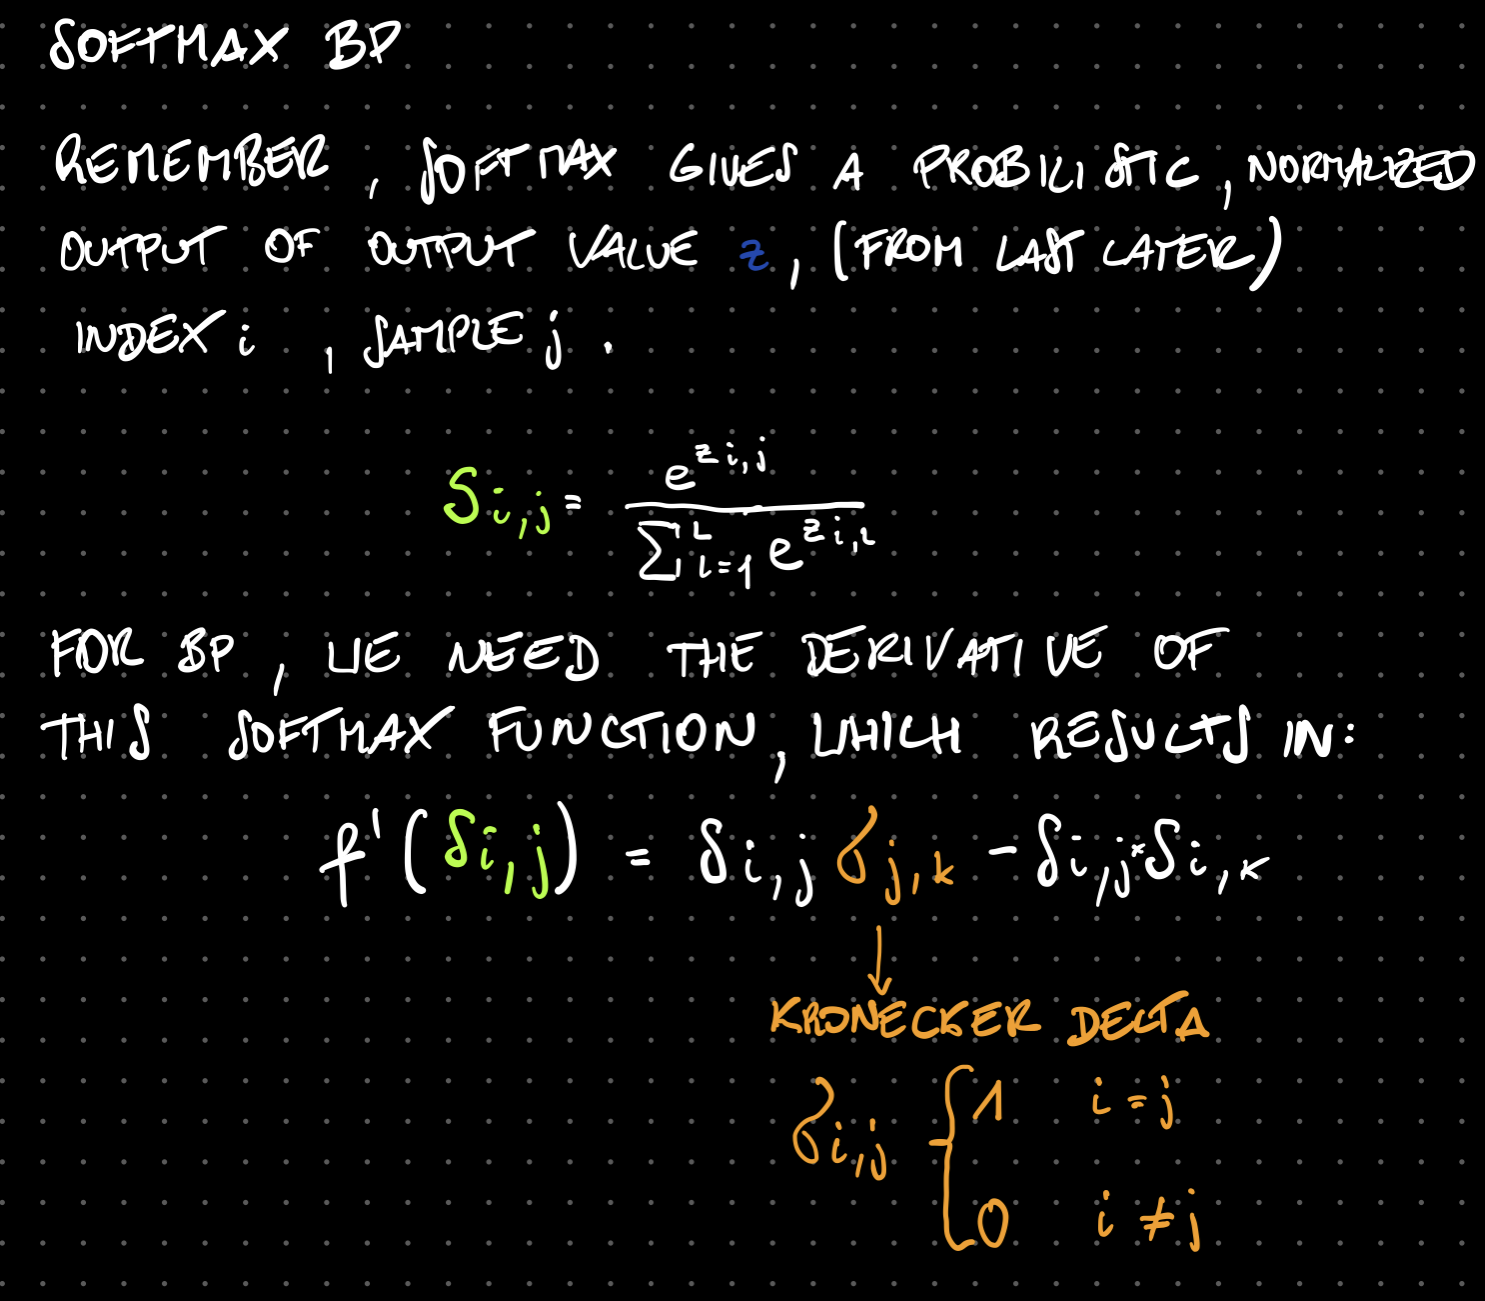 SOFTMAX BP
REMEMBER, SOFTMAX GIVES A PROBILISTIC, NORMALIZED
OUTPUT OF OUTPUT VALUE z, (FROM LAST LATER)
INDEX i , SAMPLE j .
S i,j = e^{z i,j} / ∑_{l=1}^{L} e^{z i,l}
FOR BP, WE NEED THE DERIVATIVE OF
THIS SOFTMAX FUNCTION, WHICH RESULTS IN:
f'(S i,j) = S i,j δ j,k - S i,j * S i,k
↓
KRONECKER DELTA
δ i,j { 1 i = j
0 i ≠ j